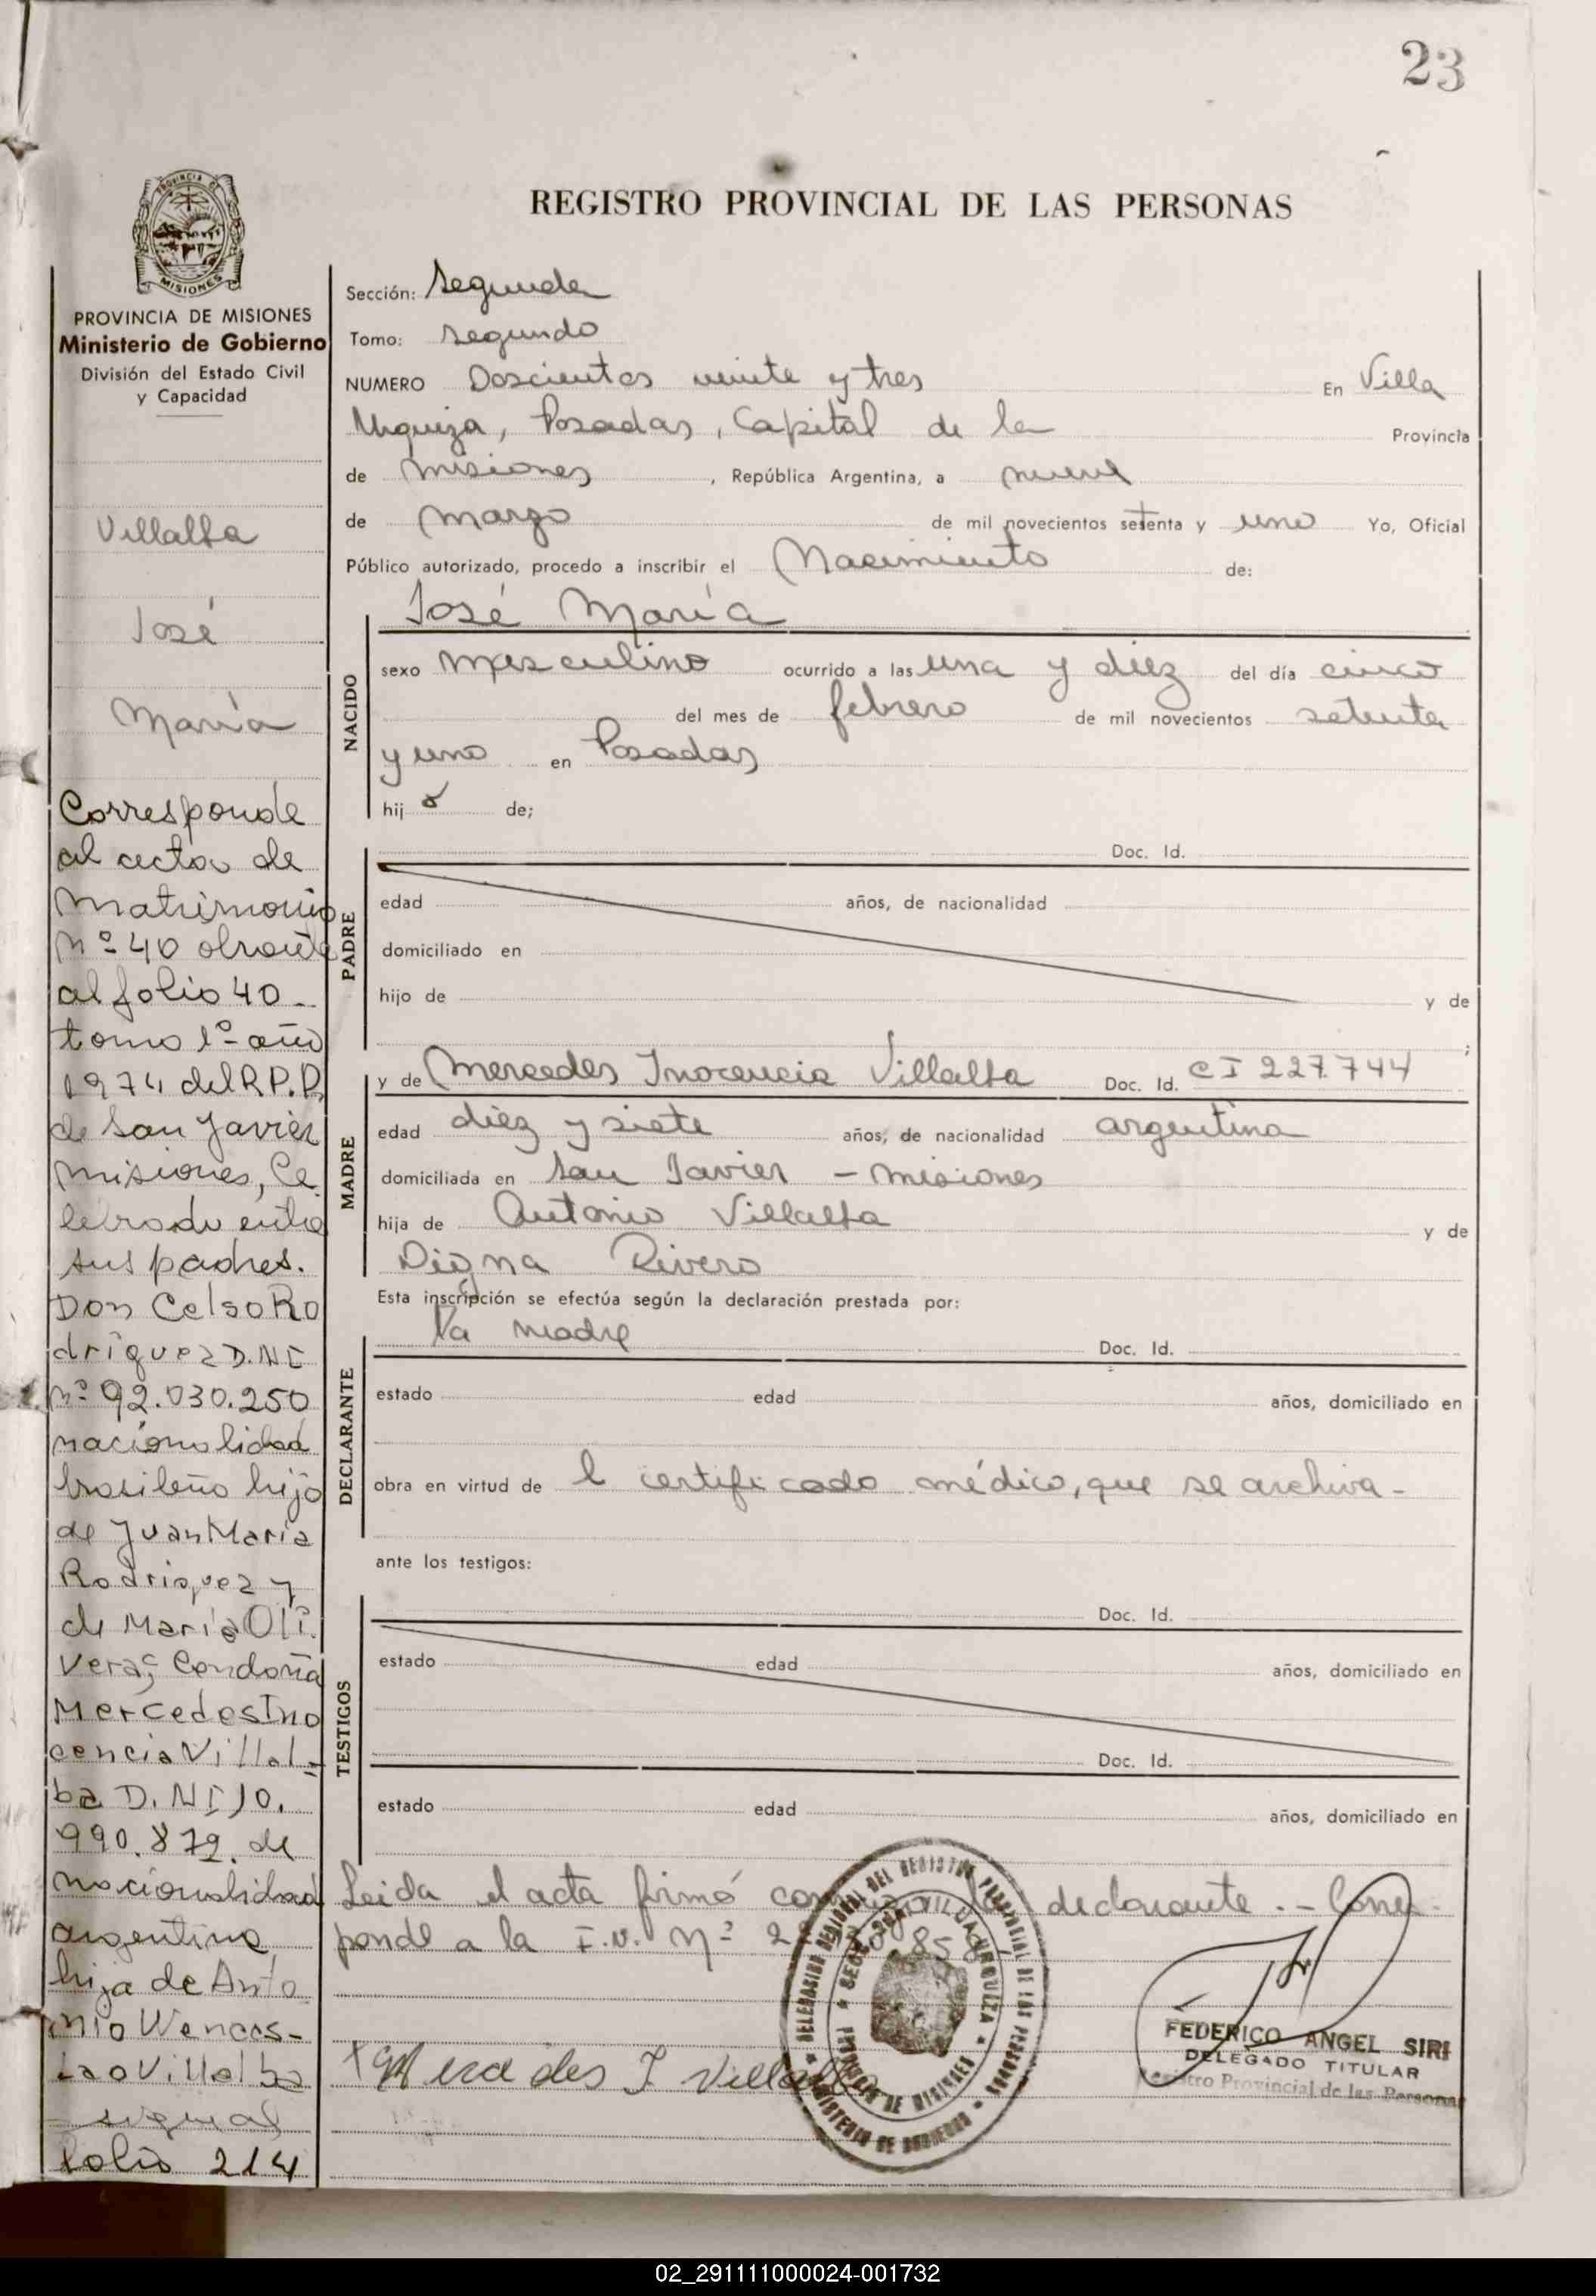 23
REGISTRO PROVINCIAL DE LAS PERSONAS
PROVINCIA DE
MISIONES
PROVINCIA DE MISIONES
Ministerio de Gobierno
División del Estado Civil
y Capacidad
Villalba
José
María
Corresponde
al acta de
Matrimonio
Nº 40 obrante
al folio 40-
tomo 1º año
1974 del R.P.P.
de San Javier
Misiones, Ce
lebrado entre
sus padres.
Don Celso Ro
driguez D.NI
nº 92.030.250
nacionalidad
brasileño hijo
de Juan Maria
Rodriguez y
de Maria Oli
vera; Con doña
Mercedes Ino
cencia Villal-
ba D.NI 10.
990.879. de
nacionalidad
argentina
hija de Anto
nio Wences-
lao Villalba
- sigue al
Folio 214
Sección: Segunda
Tomo: Segundo
NUMERO Doscientos veinte y tres En Villa
Urquiza, Posadas, Capital de la Provincia
de Misiones, República Argentina, a nueve
de Marzo de mil novecientos setenta y uno Yo, Oficial
Público autorizado, procedo a inscribir el Nacimiento de:
José María
NACIDO
sexo masculino ocurrido a las una y diez del día cinco
del mes de febrero de mil novecientos setenta
y uno en Posadas
hijo de;
PADRE
Doc. Id.
edad años, de nacionalidad
domiciliado en
hijo de y de
;
MADRE
y de Mercedes Inocencia Villalba Doc. Id. CI 227.744
edad diez y siete años, de nacionalidad argentina
domiciliada en San Javier - Misiones
hija de Antonio Villalba y de
Digna Rivero
Esta inscripción se efectúa según la declaración prestada por:
DECLARANTE
la madre Doc. Id.
estado edad años, domiciliado en
obra en virtud de l certificado médico, que se archiva-
ante los testigos:
TESTIGOS
Doc. Id.
estado edad años, domiciliado en
Doc. Id.
estado edad años, domiciliado en
Leida el acta firmó conmigo la declarante.- Corres
ponde a la I.V. Nº
DELEGACION REGIONAL DEL REGISTRO PROVINCIAL DE LAS PERSONAS
MINISTERIO DE GOBIERNO
VILLA URQUIZA
PROVINCIA DE MISIONES
Mercedes I Villalba
FEDERICO ANGEL SIRI
DELEGADO TITULAR
Registro Provincial de las Personas
02_291111000024-001732